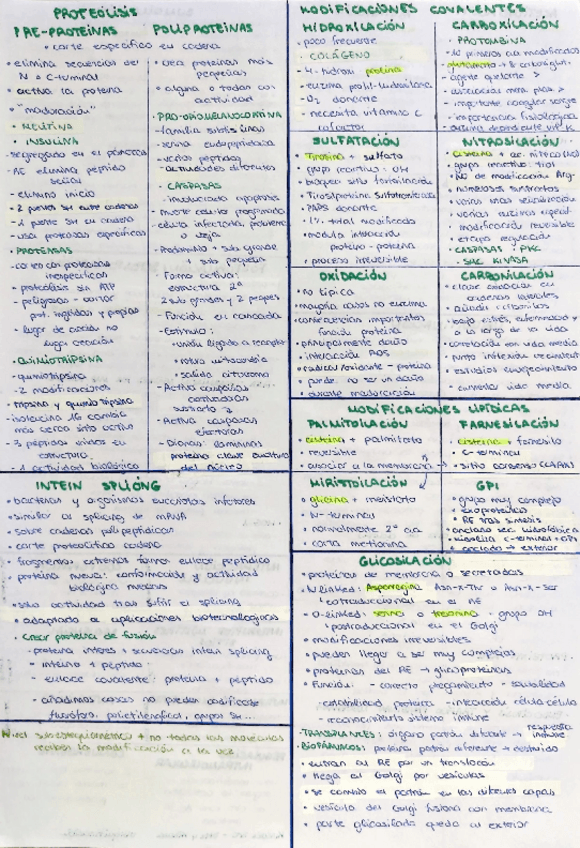 PROTEÓLISIS
PRE-PROTEÍNAS
• corte específico en cadena
• elimina secuencias del
N o C-terminal
• activa la proteína
• "maduración"
• NEUTRINA
• INSULINA
- segregado en el páncreas
- RE elimina péptido
señal
- elimino inicio
- 2 puentes SH entre cadenas
- 1 puente SH en cadena
- usa proteasas específicas
• PROTEASAS
- corte con proteasas
inespecíficas
- proteólisis sin ATP
- peligrosas - cortar
prot. ingeridas y propias
- lugar de acción no
lugar creación
• QUIMIOTRIPSINA
- quimotripsina
- 2 modificaciones
- tripsina y quimiotripsina
- isoleucina 16 cambia
más cerca sitio activo
- 3 péptidos unidos en
estructura
- 1 actividad biológica
POLIPROTEÍNAS
• crea proteínas más
pequeñas
• alguna o todas con
actividad
• PRO-OPIOMELANOCORTINA
- familia subtilisinas
- serina endopeptidasa
- varios péptidos
- actividades diferentes
• CASPASAS
- involucrado apoptosis
- muerte celular programada
- célula infectada, problema
o vieja
- Prodominio + sub grande
+ sub pequeña
- Forma activa:
estructura 2ª
2 sub grandes y 2 peques
- Función en cascada
- Estímulo:
• unido ligado a receptor
• rotura mitocondria
• salida citocromo
- Activa caspasas
- Activa caspasas
efectoras
- Dianas: laminas
proteína clave envoltura
del núcleo
INTEIN SPLICING
• bacterias y organismos eucariotas inferiores
• similar al splicing de mRNA
• sobre cadenas polipeptídicas
• corte proteolítico cadena
• fragmentos externos forman enlace peptídico
• proteína nueva: conformación y actividad
biológica nuevas
• sitio actividad tras sufrir el splicing
• adaptado a aplicaciones biotecnológicas
• crear proteína de fusión
- proteína interés + secuencias intein splicing
- inteína + péptido
- enlace covalente: proteína + péptido
- añadimos cosas no pueden codificarse
fluoróforo, polietilenglicol, grupos SH...
Nivel subestequiométrico → no todas las moléculas
reciben la modificación a la vez
MODIFICACIONES COVALENTES
HIDROXILACIÓN
• poco frecuente
• COLÁGENO
- 4-hidroxi prolina
- enzima prolil-hidroxilasa
- O₂ donante
- necesita vitamina C
cofactor
CARBOXILACIÓN
• PROTOMBINA
- 10 primeros aa modificados
- glutamato → γ carboxiglut.
- agente quelante
- importante coagular sangre
- importancia fisiológica
- enzima dependiente vit K
SULFATACIÓN
• Tirosina + sulfato
• grupo reactivo: OH
• bloquea sitio fosforilación
• Tirosilproteína sulfotransferasa
• PAPS donante
• 1% total modificadas
• modula interacción
proteína - proteína
• proceso irreversible
NITROSILACIÓN
• cisteína + ác. nítrico (NO)
• grupo reactivo: tiol
• NO de modificación Arg
• numerosos sustratos
• modificación reversible
• efecto regulación
• CASPASAS • PKC
• SRC KINASA
OXIDACIÓN
• no típica
• mayoría casos no enzima
• consecuencias importantes
función proteína
• principalmente daño
• interacción ROS
• radical oxidante - proteína
• puede no ser un daño
• durante maduración
CARBONILACIÓN
• clave
cadenas laterales
• añadir carbonilos
• bajo estrés, enfermedad y
a lo largo de la vida
• correlación con vida media
• punto inflexión crecimiento
• estudios envejecimiento
• cambiar vida media
MODIFICACIONES LIPÍDICAS
PALMITOILACIÓN
• cisteína + palmitato
• reversible
• asociar a la membrana
FARNESILACIÓN
• cisteína + farnesilo
• C-terminal
• sitio consenso (CAAX)
MIRISTOILACIÓN
• glicina + miristato
• N-terminal
• normalmente 2º aa
• corta metionina
GPI
• grupo muy complejo
• exoproteínas
• RE tras síntesis
• anclado sec. hidrofóbica
• hidroliza C-terminal + GPI
• anclado → exterior
GLICOSILACIÓN
• proteínas de membrana o secretadas
• N-linked: Asparragina Asn-X-Thr o Asn-X-Ser
cotraduccional en el RE
• O-linked: serina treonina • grupo OH
postraduccional en el Golgi
• modificaciones irreversibles
• pueden llegar a ser muy complejas
• proteínas del RE → glicoproteínas
• Función: - correcto plegamiento - solubilidad
- estabilidad proteína - interacción célula célula
- reconocimiento sistema inmune
- TRANSPLANTES: órgano patrón diferente → respuesta inmune
- BIOFÁRMACOS: proteína patrón diferente → destruido
• entran al RE por un translocón
• llega al Golgi por vesículas
• se cambia el patrón en las diferentes capas
• vesícula del Golgi fusiona con membrana
• parte glicosilada queda al exterior